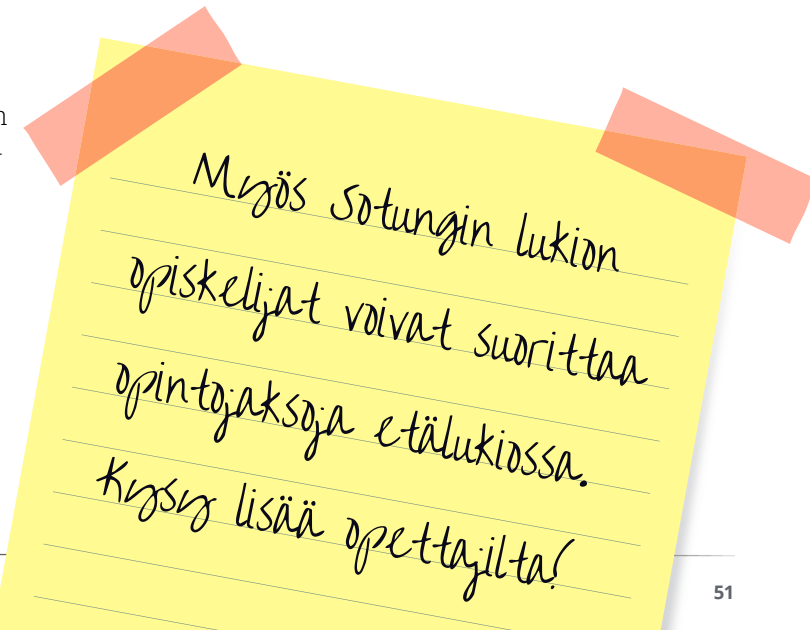 Myös Sotungin lukion
opiskelijat voivat suorittaa
opintojaksoja etälukiossa.
Kysy lisää opettajilta!
51